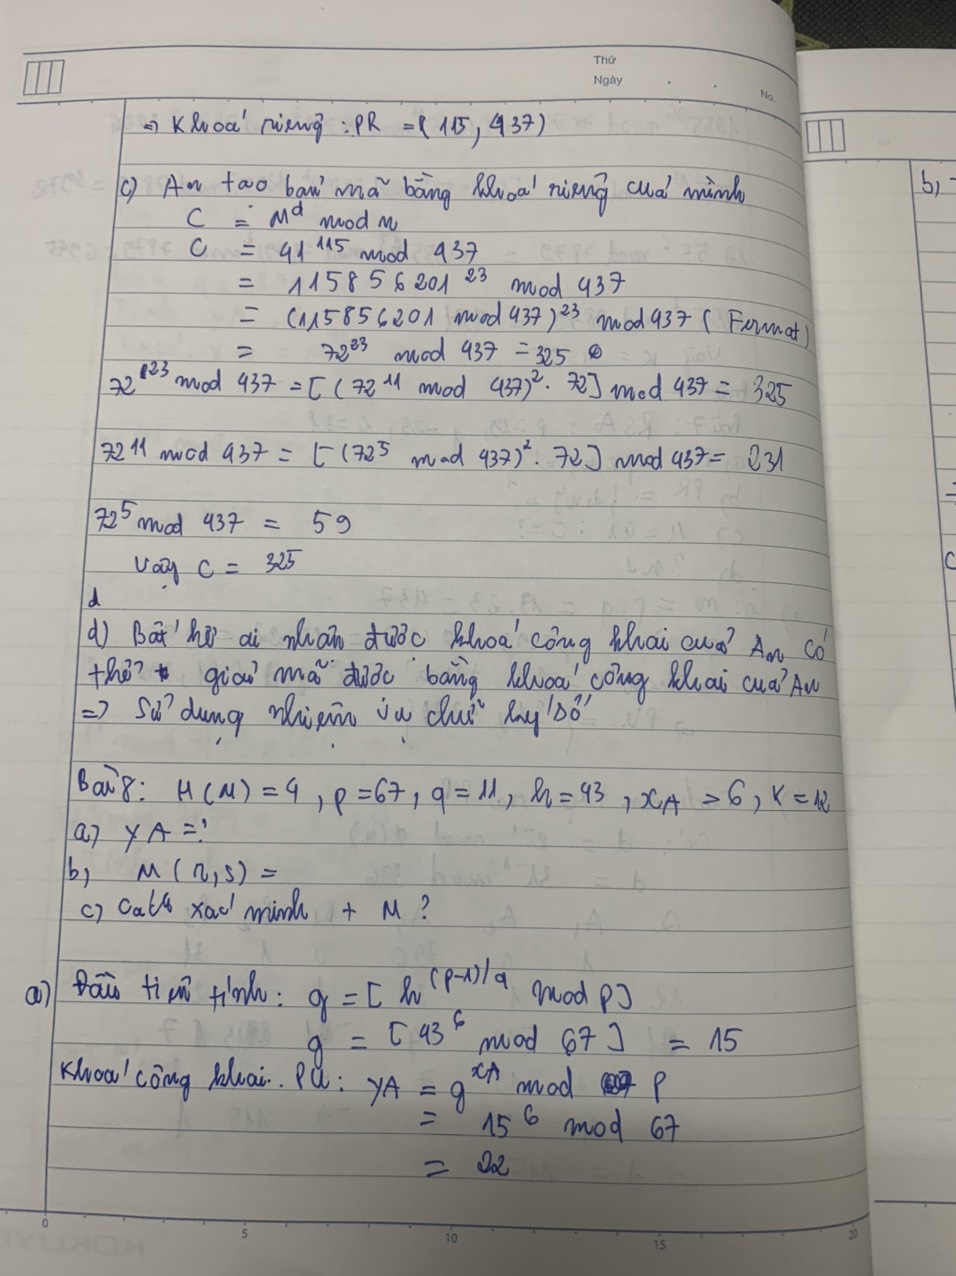 Thứ
Ngày
No.
=> Khoá riêng : PR = (115, 437)
c) An tạo bản mã bằng khoá riêng của mình
C = M^d mod n
C = 41^115 mod 437
= 115856201^23 mod 437
= (115856201 mod 437)^23 mod 437 (Fermat)
= 72^23 mod 437 = 325
72^23 mod 437 = [(72^11 mod 437)^2 . 72] mod 437 = 325
72^11 mod 437 = [(72^5 mod 437)^2 . 72] mod 437 = 231
72^5 mod 437 = 59
Vậy C = 325
d
d) Bất kỳ ai nhận được khoá công khai của An có
thể giải mã được bằng khoá công khai của An
=> Sử dụng nhiệm vụ chữ ký số
Bài 8: H(M) = 4, p = 67, q = 11, h = 43, xA = 6, K = 12
a) yA = ?
b) M (r, s) =
c) Cách xác minh + M ?
a) Đầu tiên tính: g = [h^(p-1)/q mod p]
g = [43^6 mod 67] = 15
Khoá công khai. PU: yA = g^xA mod p
= 15^6 mod 67
= 22
0 5 10 15 20
b)
c